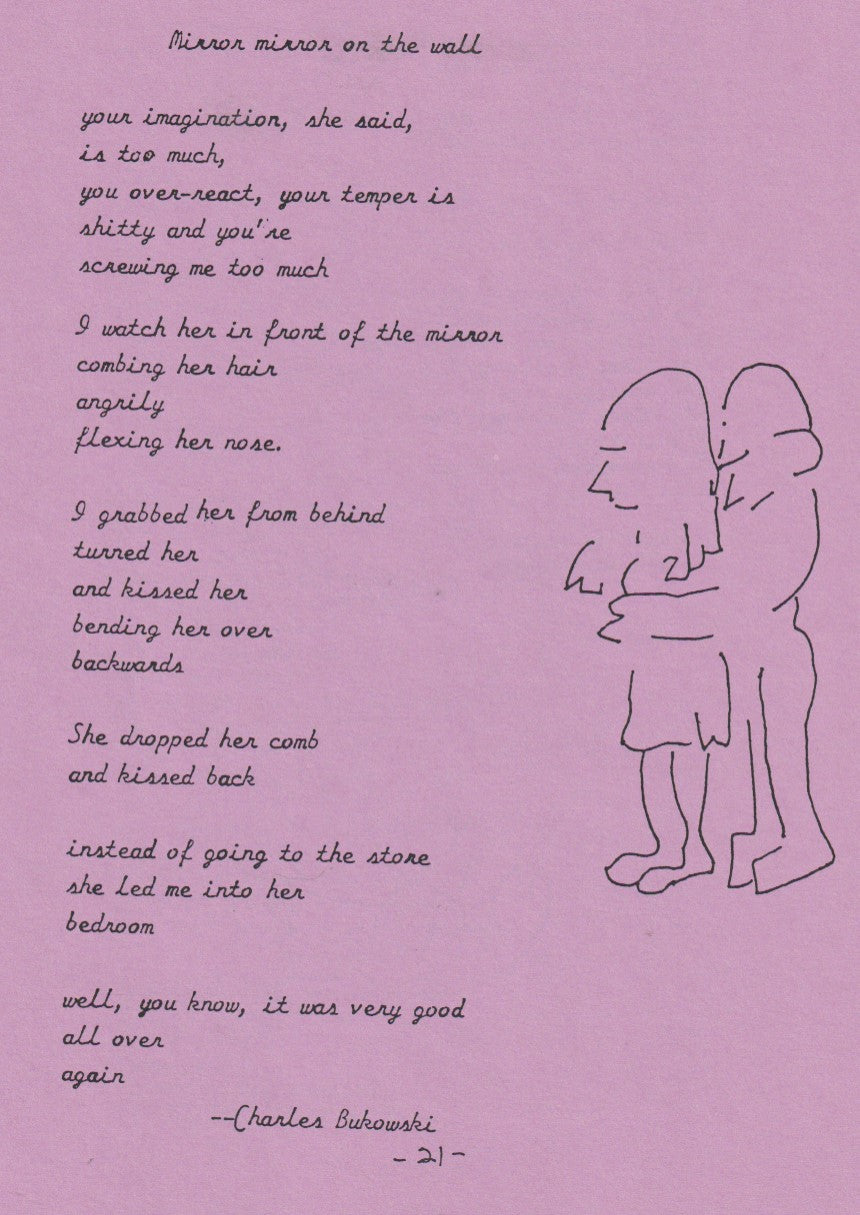 Mirror mirror on the wall
your imagination, she said,
is too much,
you over-react, your temper is
shitty and you're
screwing me too much
I watch her in front of the mirror
combing her hair
angrily
flexing her nose.
I grabbed her from behind
turned her
and kissed her
bending her over
backwards
She dropped her comb
and kissed back
instead of going to the store
she led me into her
bedroom
well, you know, it was very good
all over
again
--Charles Bukowski
- 21 -